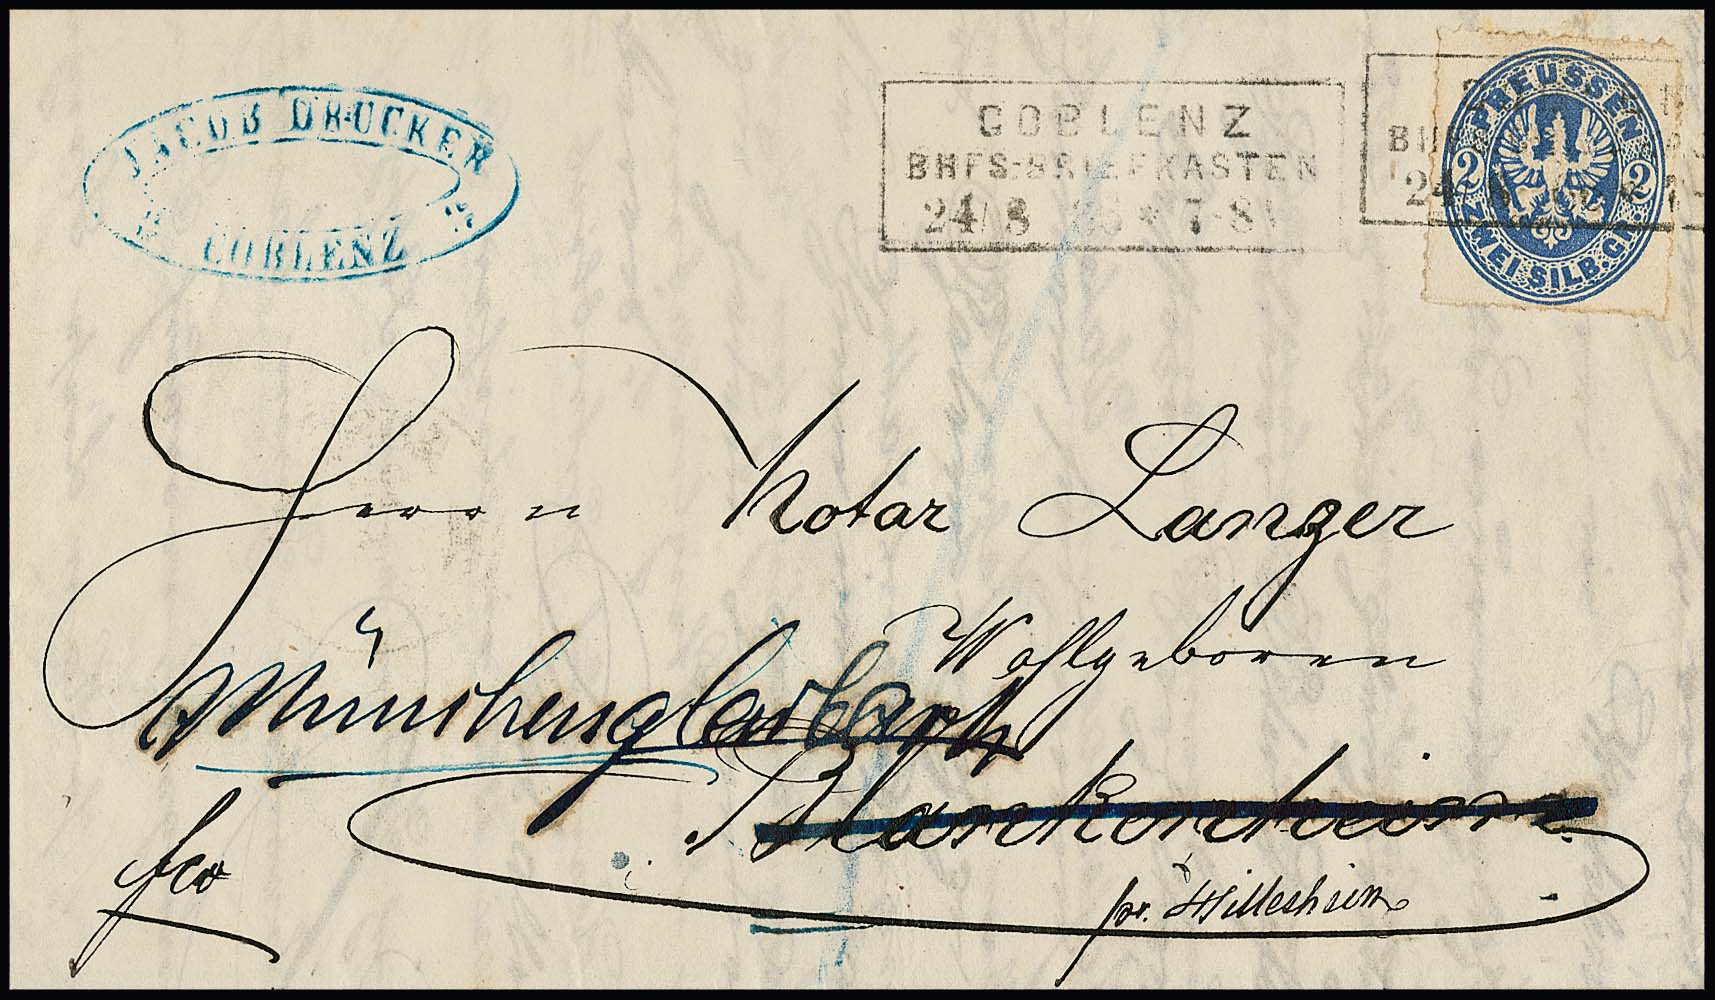 JACOB DRUCKER
COBLENZ
COBLENZ
BHFS-BRIEFKASTEN
24/8 66 * 7-8
PREUSSEN
2 2
ZWEI SILB. GR.
24
Herrn Notar Langer
Wohlgeboren
München gladbach
Blankenheim
fco
pr. Hillesheim